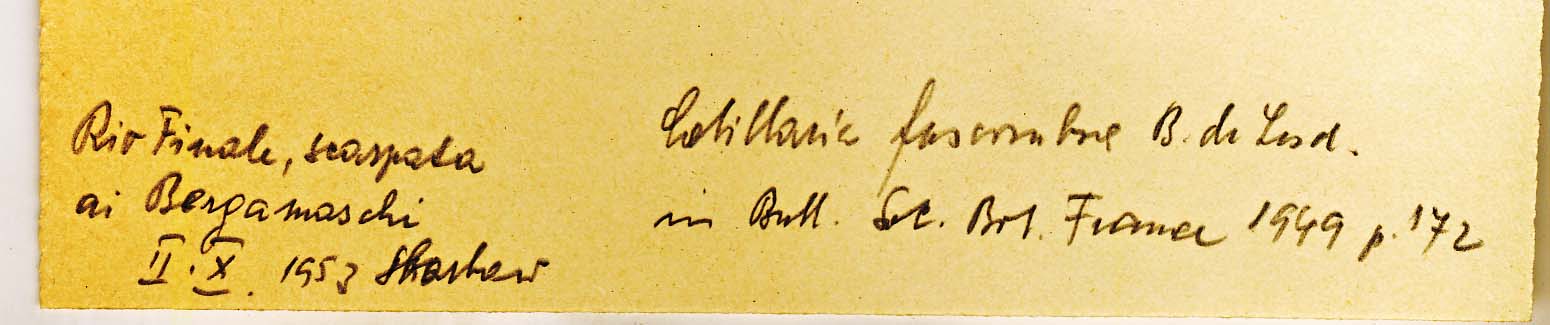 Rio Finale, scarpata
ai Bergamaschi
II. X. 1953 Sbarbaro
Catillaria fuscorubra B. de Lesd.
in Bull. Soc. Bot. France 1949 p. 172